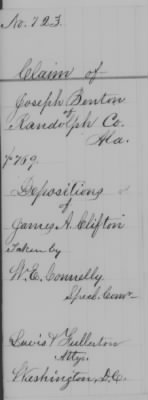 No. 723.
Claim of
Joseph Benton
of
Randolph Co.
Ala.
$769.
Depositions
of
James A. Clifton
Taken by
W. E. Connelly
Spec. Com.
Lewis & Fullerton
Attys.
Washington, D.C.